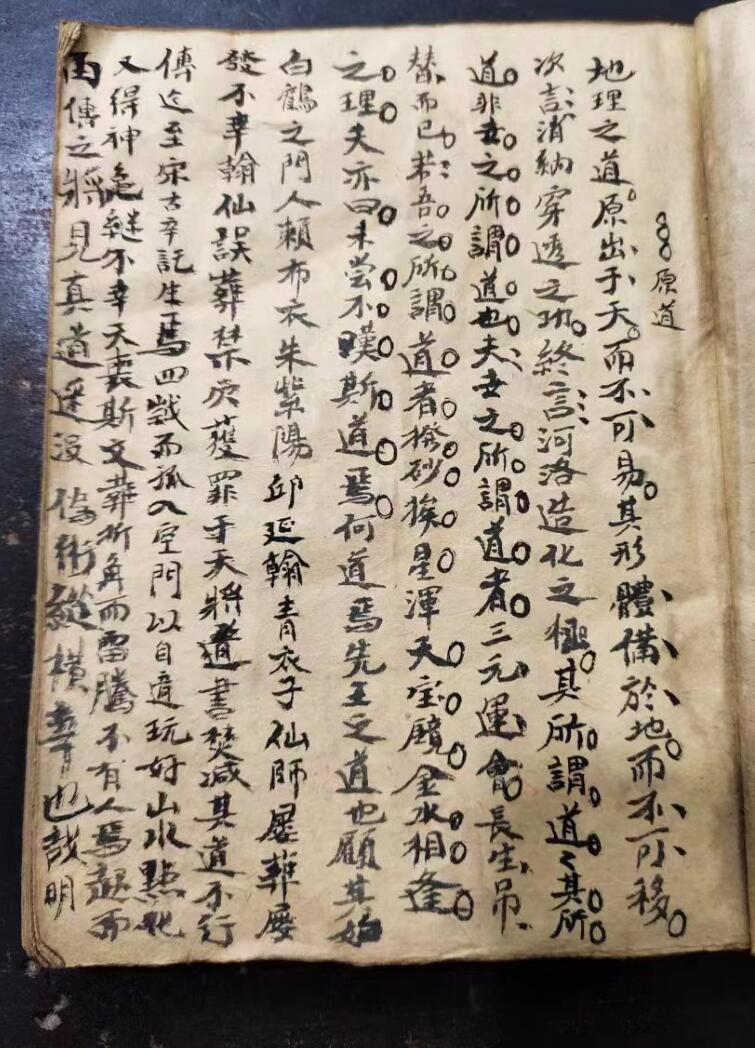 原道
地理之道原出于天而不可易其形體備於地而不可移
次言消納穿透之功終言河洛造化之極其所謂道〻其所
道非世之所謂道也夫世之所謂道者三元運會長生吊
替而已若吾之所謂道者撥砂挨星渾天宝鏡金水相逢
之理夫亦曰未尝不嘆斯道焉何道焉先王之道也顧其始
白鶴之門人賴布衣朱紫陽邱延翰青衣子仙師屡葬屡
發不幸翰仙誤葬禁庆獲罪于天將道書焚减其道不行
傳迄至宋吉辛託生焉四歲而孤入空門以自適玩好山水點化
又得神龟縫不幸天喪斯文葬折角而雷騰不有人焉起而
函傳之將見真道遂没偽術縱横等也哉明